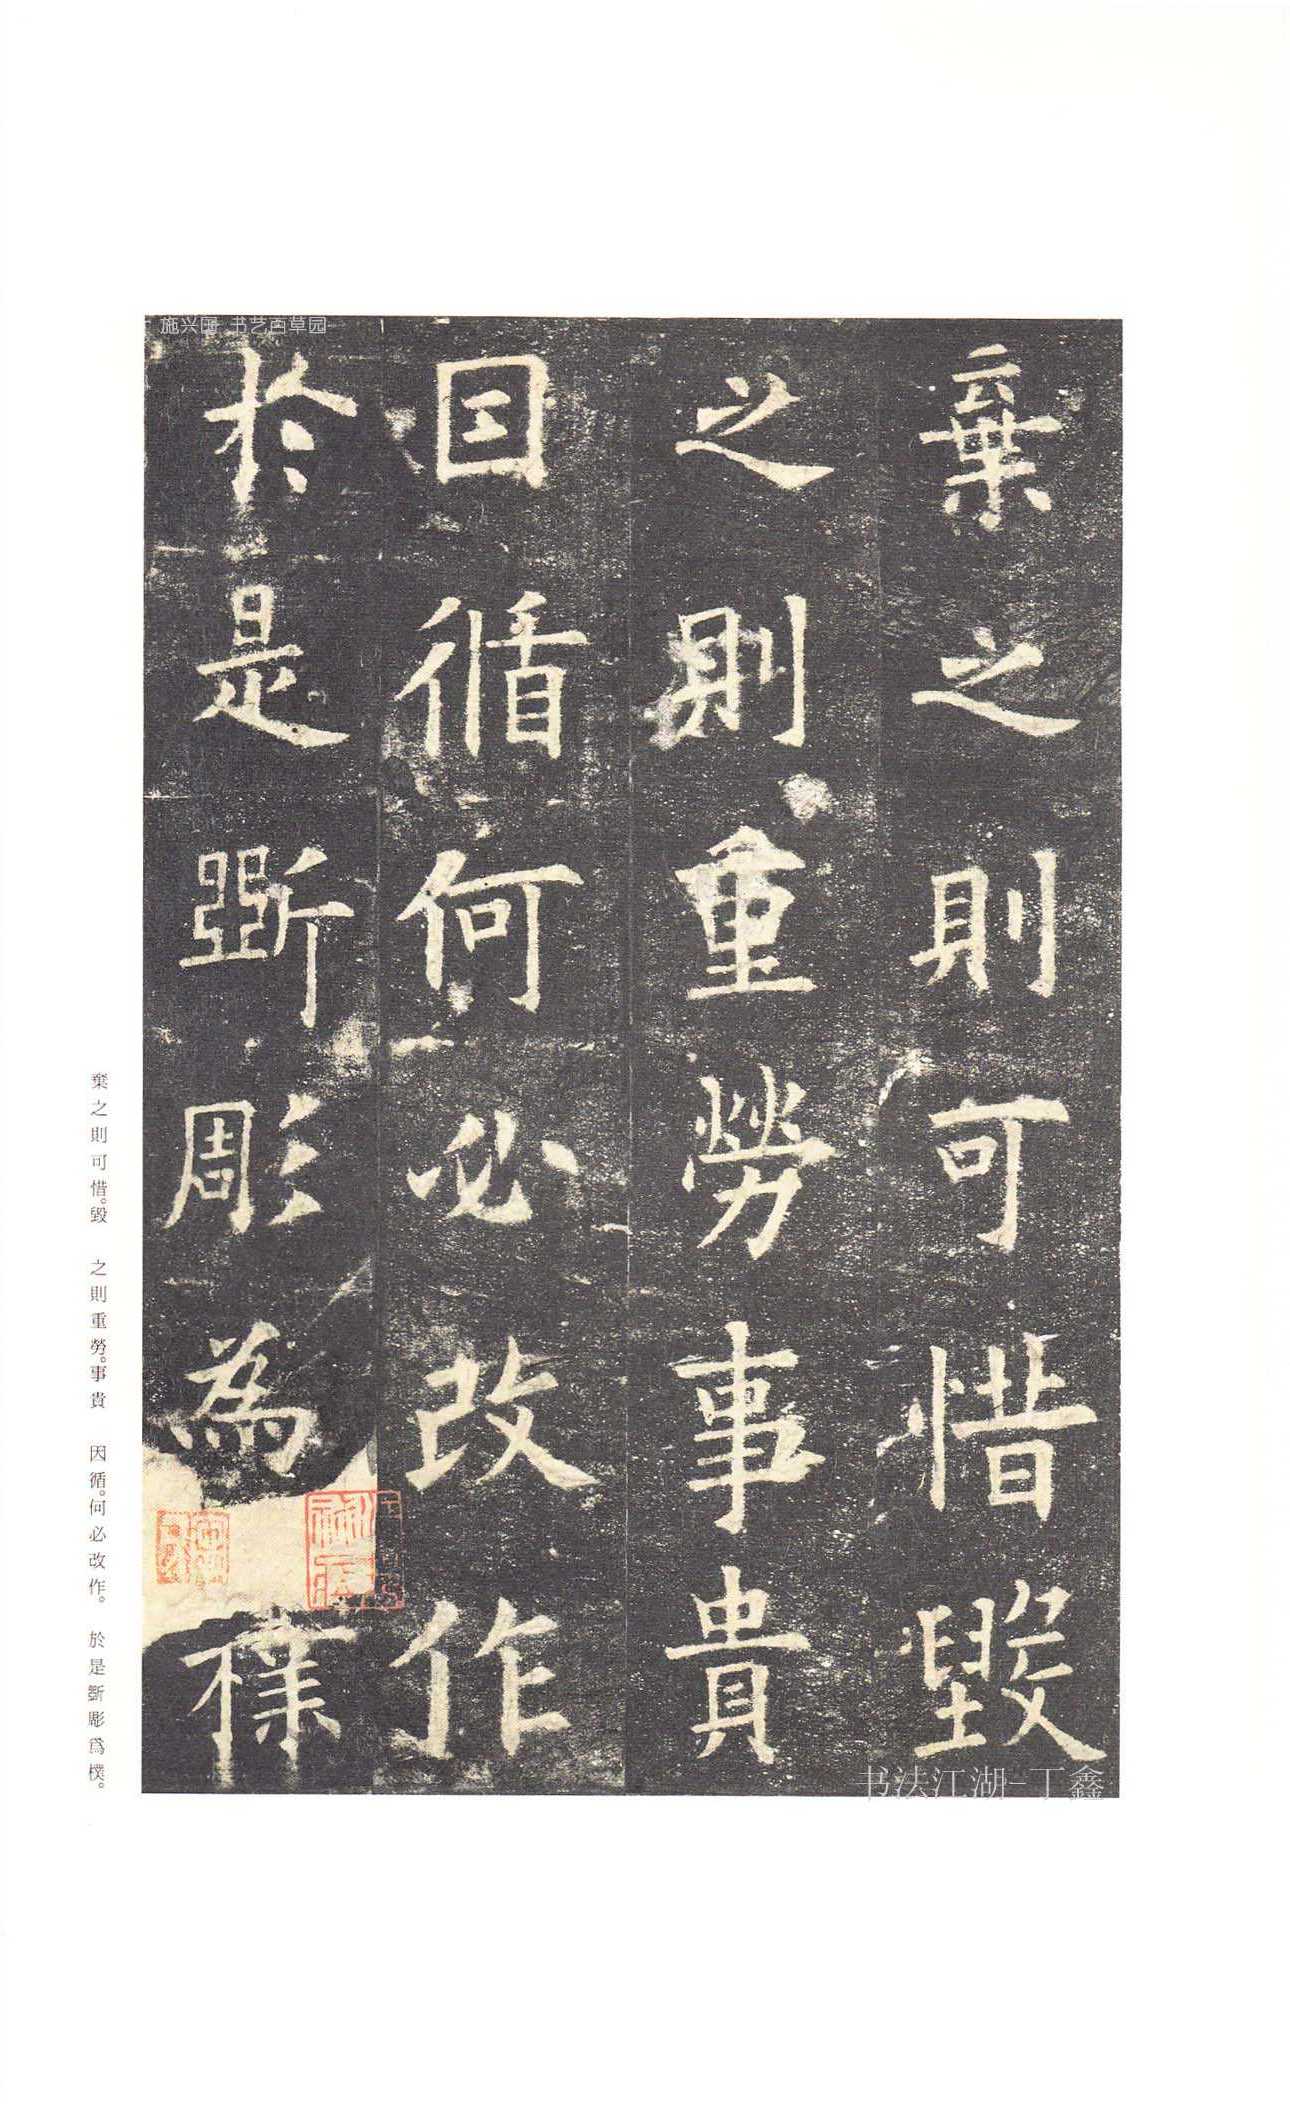 棄之則可惜毀
之則重勞事貴
因循何必改作
於是斲彫為樸
棄之則可惜。毀　之則重勞。事貴　因循。何必改作。　於是斲彫爲樸。
施兴国 书艺百草园
书法江湖-丁鑫